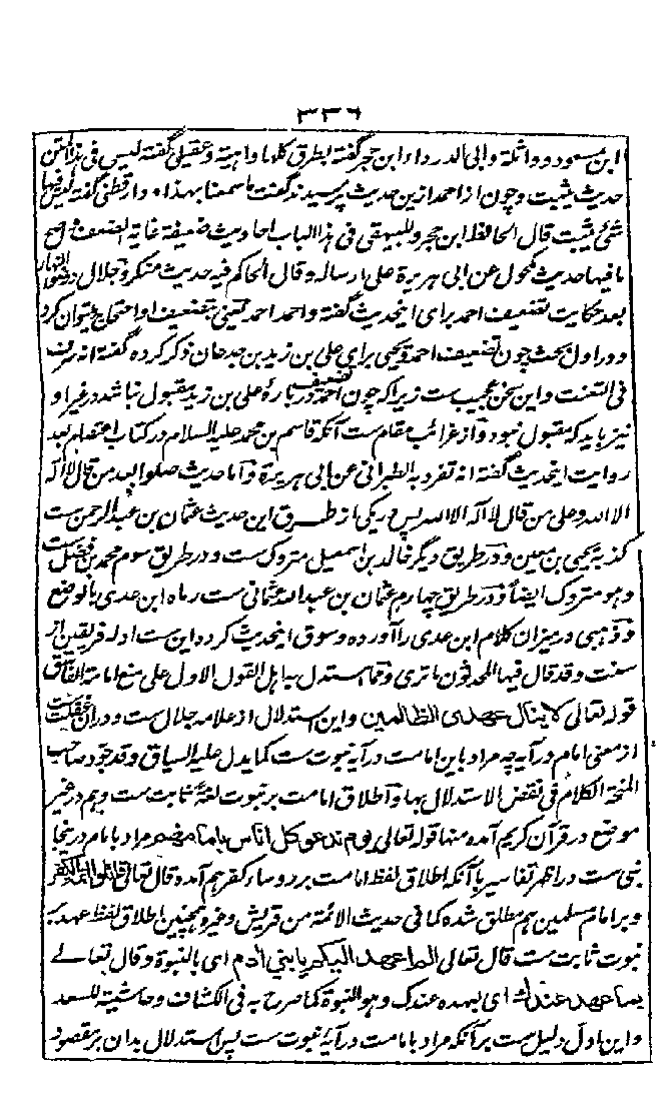 ۳۳۶
ابن مسعود و واثلة وابی الدرداء ابن حجر گفته بطرق كلها واهية و عقیلی گفته لیس فی هذا المتن
حدیث یثبت و چون از احمد ازین حدیث پرسیدند گفت ما سمعنا بهذا و دارقطنی گفته لیس فیها
شیٔ یثبت قال الحافظ ابن حجر وللبیهقی فی هذا الباب احادیث ضعیفة غایة الضعف و اصح
ما فیها حدیث مکحول عن ابی هریرة علی ارساله و قال الحاکم فیه حدیث منکر و جلال در ضوء النهار
بعد حکایت تضعیف احمد برای اینحدیث گفته و احمد احمد یعنی بتضعیف او احتجاج میتوان کرد
و در اول بحث چون تضعیف احمد و یحیی برای علی بن زید بن جدعان ذکر کرده گفته انه سرف
فی التعنت و این سخن عجیب ست زیرا که چون تضعیف احمد دربارهٔ علی بن زید مقبول نباشد در غیر او
نیز باید که مقبول نبود و از غرائب مقام ست آنکه قاسم بن محمد علیه السلام در کتاب اعتصام بعد
روایت اینحدیث گفته انه تفرد به الطبرانی عن ابی هریرة و اما حدیث صلوا بعد من قال لا اله
الا الله و علی من قال لا اله الا الله پس در یکی از طرق این حدیث عثمان بن عبد الرحمن ست
کذبه یحیی بن معین و در طریق دیگر خالد بن اسمعیل متروک ست و در طریق سوم محمد بن فضل ست
و هو متروک ایضاً و در طریق چهارم عثمان بن عبد الله عثمانی ست رماه ابن عدی بالوضع
و ذهبی در میزان کلام ابن عدی را آورده و سوق اینحدیث کرده این ست ادله فریقین از
سنت و قد قال فیها المحدثون ما تری و مما یستدل به اهل القول الاول علی منع امامة الفاسق
قوله تعالی لا ینال عهدی الظالمین و این استدلال از علامه جلال ست و دران غفلت ست
از معنی امام در آیه چه مراد باین امامت در آیه نبوت ست کما یدل علیه السیاق و قد جود صاحب
المنحة الکلام فی نقض الاستدلال بها و اطلاق امامت بر نبوت لغةً ثابت ست و هم در غیر
موضع در قرآن کریم آمده منها قوله تعالی یوم ندعو کل اناس بامامهم مراد بامام درینجا
نبی ست در اظهر تفاسیر با آنکه اطلاق لفظ امامت بر رؤساء کفر هم آمده قال تعالی فقاتلوا ائمة الکفر
و بر امام مسلمین هم مطلق شده کما فی حدیث الائمة من قریش و غیره و همچنین اطلاق لفظ عهد بر
نبوت ثابت ست قال تعالی الم اعهد الیکم یا بنی آدم ای بالنبوة و قال تعالے
بما عهد عندک ای بعهده عندک و هو النبوة کما صرح به فی الکشاف و حاشیته للسعد
و این اول دلیل ست بر آنکه مراد بامامت در آیه نبوت ست پس استدلال بدان بر مقصود